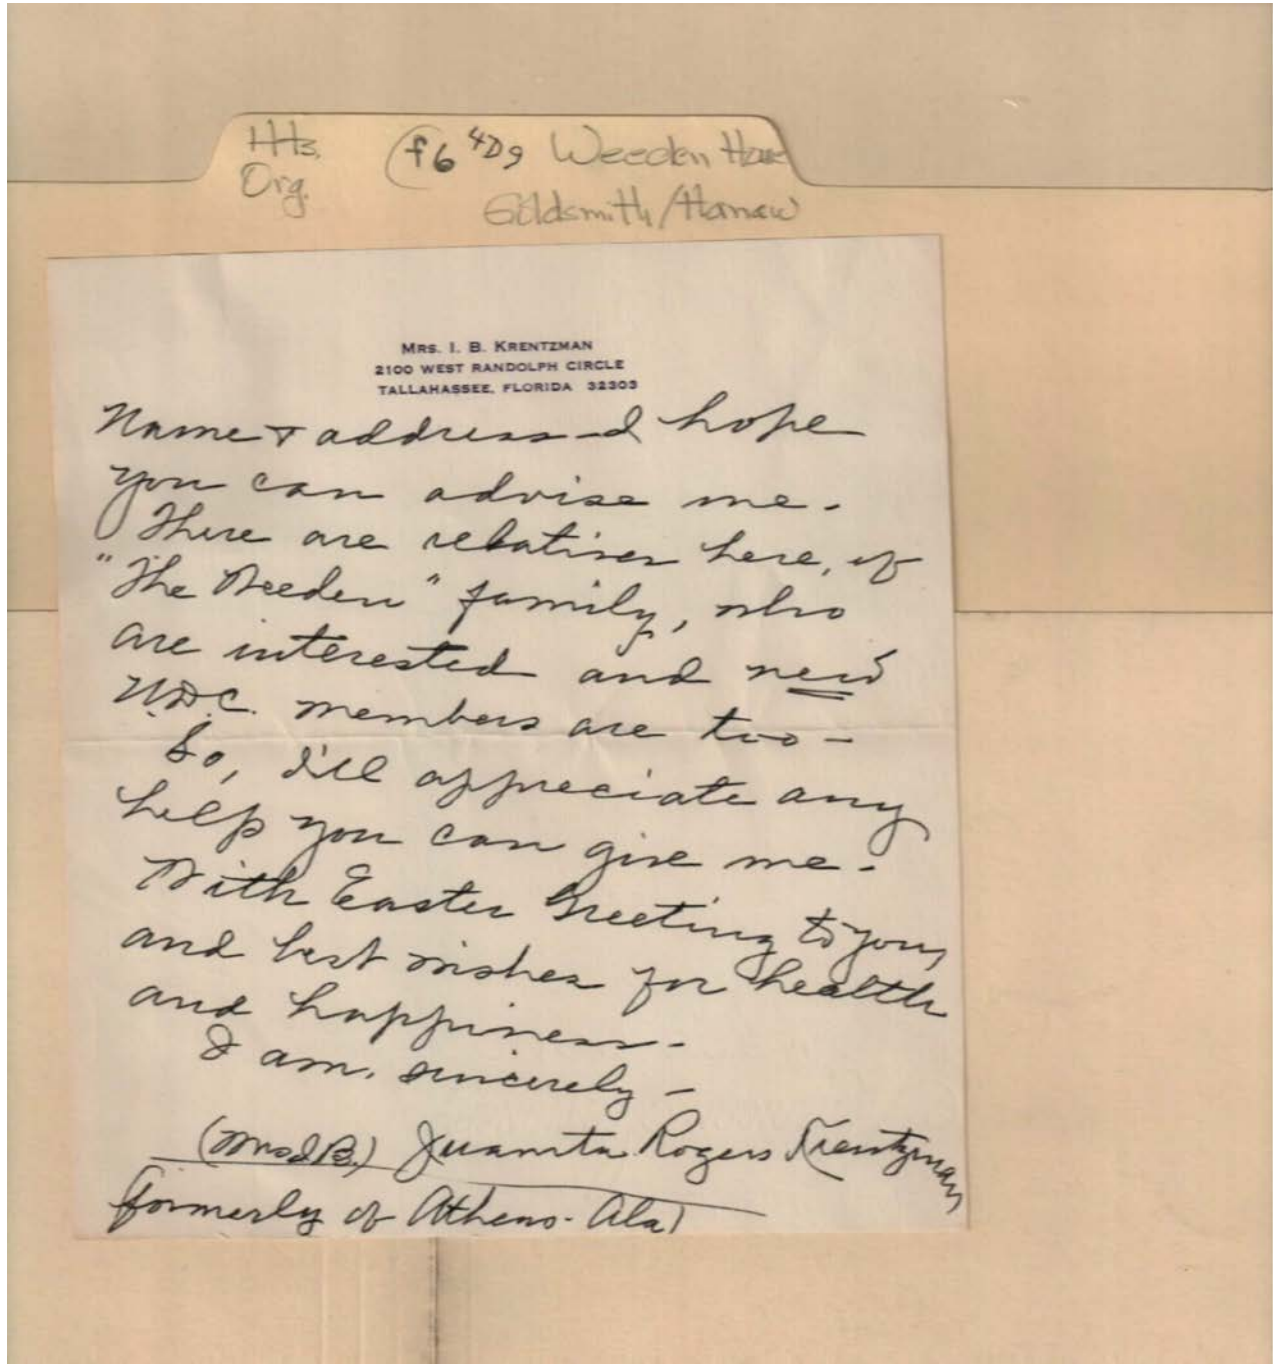 HHs,
Org.
(f6 4D9 Weeden House
Goldsmith/Harraw
MRS. I. B. KRENTZMAN
2100 WEST RANDOLPH CIRCLE
TALLAHASSEE, FLORIDA 32303
Name & address - I hope
you can advise me.
There are relatives here, of
"The Weeden" family, who
are interested and new
U.D.C. members are too -
So, I'll appreciate any
help you can give me.
With Easter Greeting to you,
and best wishes for health
and happiness.
I am, sincerely -
(Mrs I B.) Juanita Rogers Krentzman
formerly of Athens - Ala)